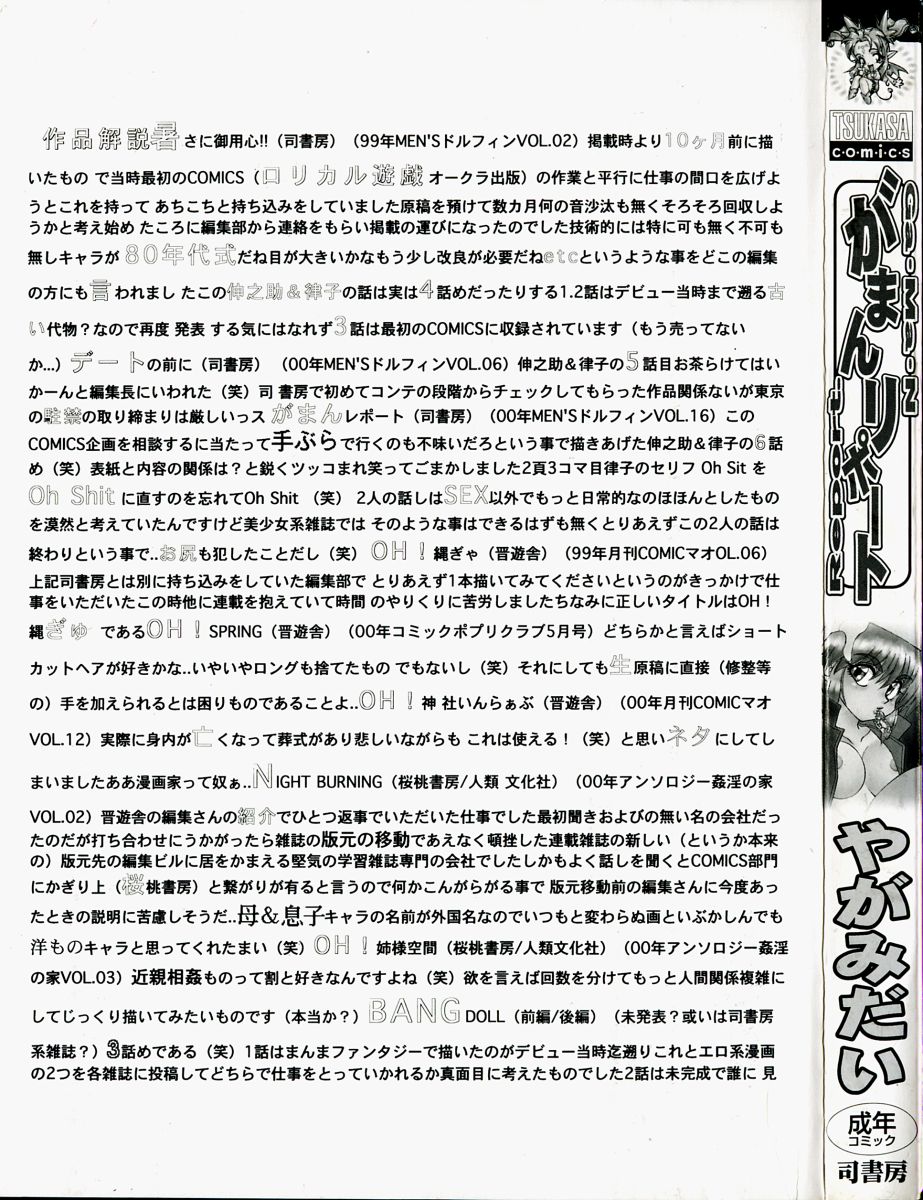 作品解説暑さに御用心!!（司書房）（99年MEN'SドルフィンVOL.02）掲載時より10ヶ月前に描
いたもの で当時最初のCOMICS（ロリカル遊戯 オークラ出版）の作業と平行に仕事の間口を広げよ
うとこれを持って あちこちと持ち込みをしていました原稿を預けて数カ月何の音沙汰も無くそろそろ回収しよ
うかと考え始め たころに編集部から連絡をもらい掲載の運びになったのでした技術的には特に可も無く不可も
無しキャラが 80年代式だね目が大きいかなもう少し改良が必要だねetcというような事をどこの編集
の方にも言われまし たこの伸之助＆律子の話は実は4話めだったりする1.2話はデビュー当時まで遡る古
い代物？なので再度 発表 する気にはなれず3話は最初のCOMICSに収録されています（もう売ってない
か...）デートの前に（司書房）（00年MEN'SドルフィンVOL.06）伸之助＆律子の5話目お茶らけてはい
かーんと編集長にいわれた（笑）司 書房で初めてコンテの段階からチェックしてもらった作品関係ないが東京
の駐禁の取り締まりは厳しいっス がまんレポート（司書房）（00年MEN'SドルフィンVOL.16）この
COMICS企画を相談するに当たって手ぶらで行くのも不味いだろという事で描きあげた伸之助＆律子の6話
め（笑）表紙と内容の関係は？と鋭くツッコまれ笑ってごまかしました2頁3コマ目律子のセリフ Oh Sit を
Oh Shit に直すのを忘れてOh Shit （笑） 2人の話しはSEX以外でもっと日常的なのほほんとしたもの
を漠然と考えていたんですけど美少女系雑誌では そのような事はできるはずも無くとりあえずこの2人の話は
終わりという事で..お尻も犯したことだし（笑） OH！縄ぎゃ（晋遊舎）（99年月刊COMICマオOL.06）
上記司書房とは別に持ち込みをしていた編集部で とりあえず1本描いてみてくださいというのがきっかけで仕
事をいただいたこの時他に連載を抱えていて時間 のやりくりに苦労しましたちなみに正しいタイトルはOH！
縄ぎゅ であるOH！SPRING（晋遊舎）（00年コミックポプリクラブ5月号）どちらかと言えばショート
カットヘアが好きかな..いやいやロングも捨てたもの でもないし（笑）それにしても生原稿に直接（修整等
の）手を加えられるとは困りものであることよ..OH！神 社いんらぁぶ（晋遊舎）（00年月刊COMICマオ
VOL.12）実際に身内が亡くなって葬式があり悲しいながらも これは使える！（笑）と思いネタにしてし
まいましたああ漫画家って奴ぁ..NIGHT BURNING（桜桃書房/人類 文化社）（00年アンソロジー姦淫の家
VOL.02）晋遊舎の編集さんの紹介でひとつ返事でいただいた仕事でした最初聞きおよびの無い名の会社だっ
たのだが打ち合わせにうかがったら雑誌の版元の移動であえなく頓挫した連載雑誌の新しい（というか本来
の）版元先の編集ビルに居をかまえる堅気の学習雑誌専門の会社でしたしかもよく話しを聞くとCOMICS部門
にかぎり上（桜桃書房）と繋がりが有ると言うので何かこんがらがる事で 版元移動前の編集さんに今度あっ
たときの説明に苦慮しそうだ..母＆息子キャラの名前が外国名なのでいつもと変わらぬ画といぶかしんでも
洋ものキャラと思ってくれたまい（笑）OH！姉様空間（桜桃書房/人類文化社）（00年アンソロジー姦淫
の家VOL.03）近親相姦ものって割と好きなんですよね（笑）欲を言えば回数を分けてもっと人間関係複雑に
してじっくり描いてみたいものです（本当か？）BANG DOLL（前編/後編）（未発表？或いは司書房
系雑誌？）3話めである（笑）1話はまんまファンタジーで描いたのがデビュー当時迄遡りこれとエロ系漫画
の2つを各雑誌に投稿してどちらで仕事をとっていかれるか真面目に考えたものでした2話は未完成で誰に 見
TSUKASA
c・o・m・i・c・s
がまんリポート
Report
Non Moses
やがみだい
成年
コミック
司書房